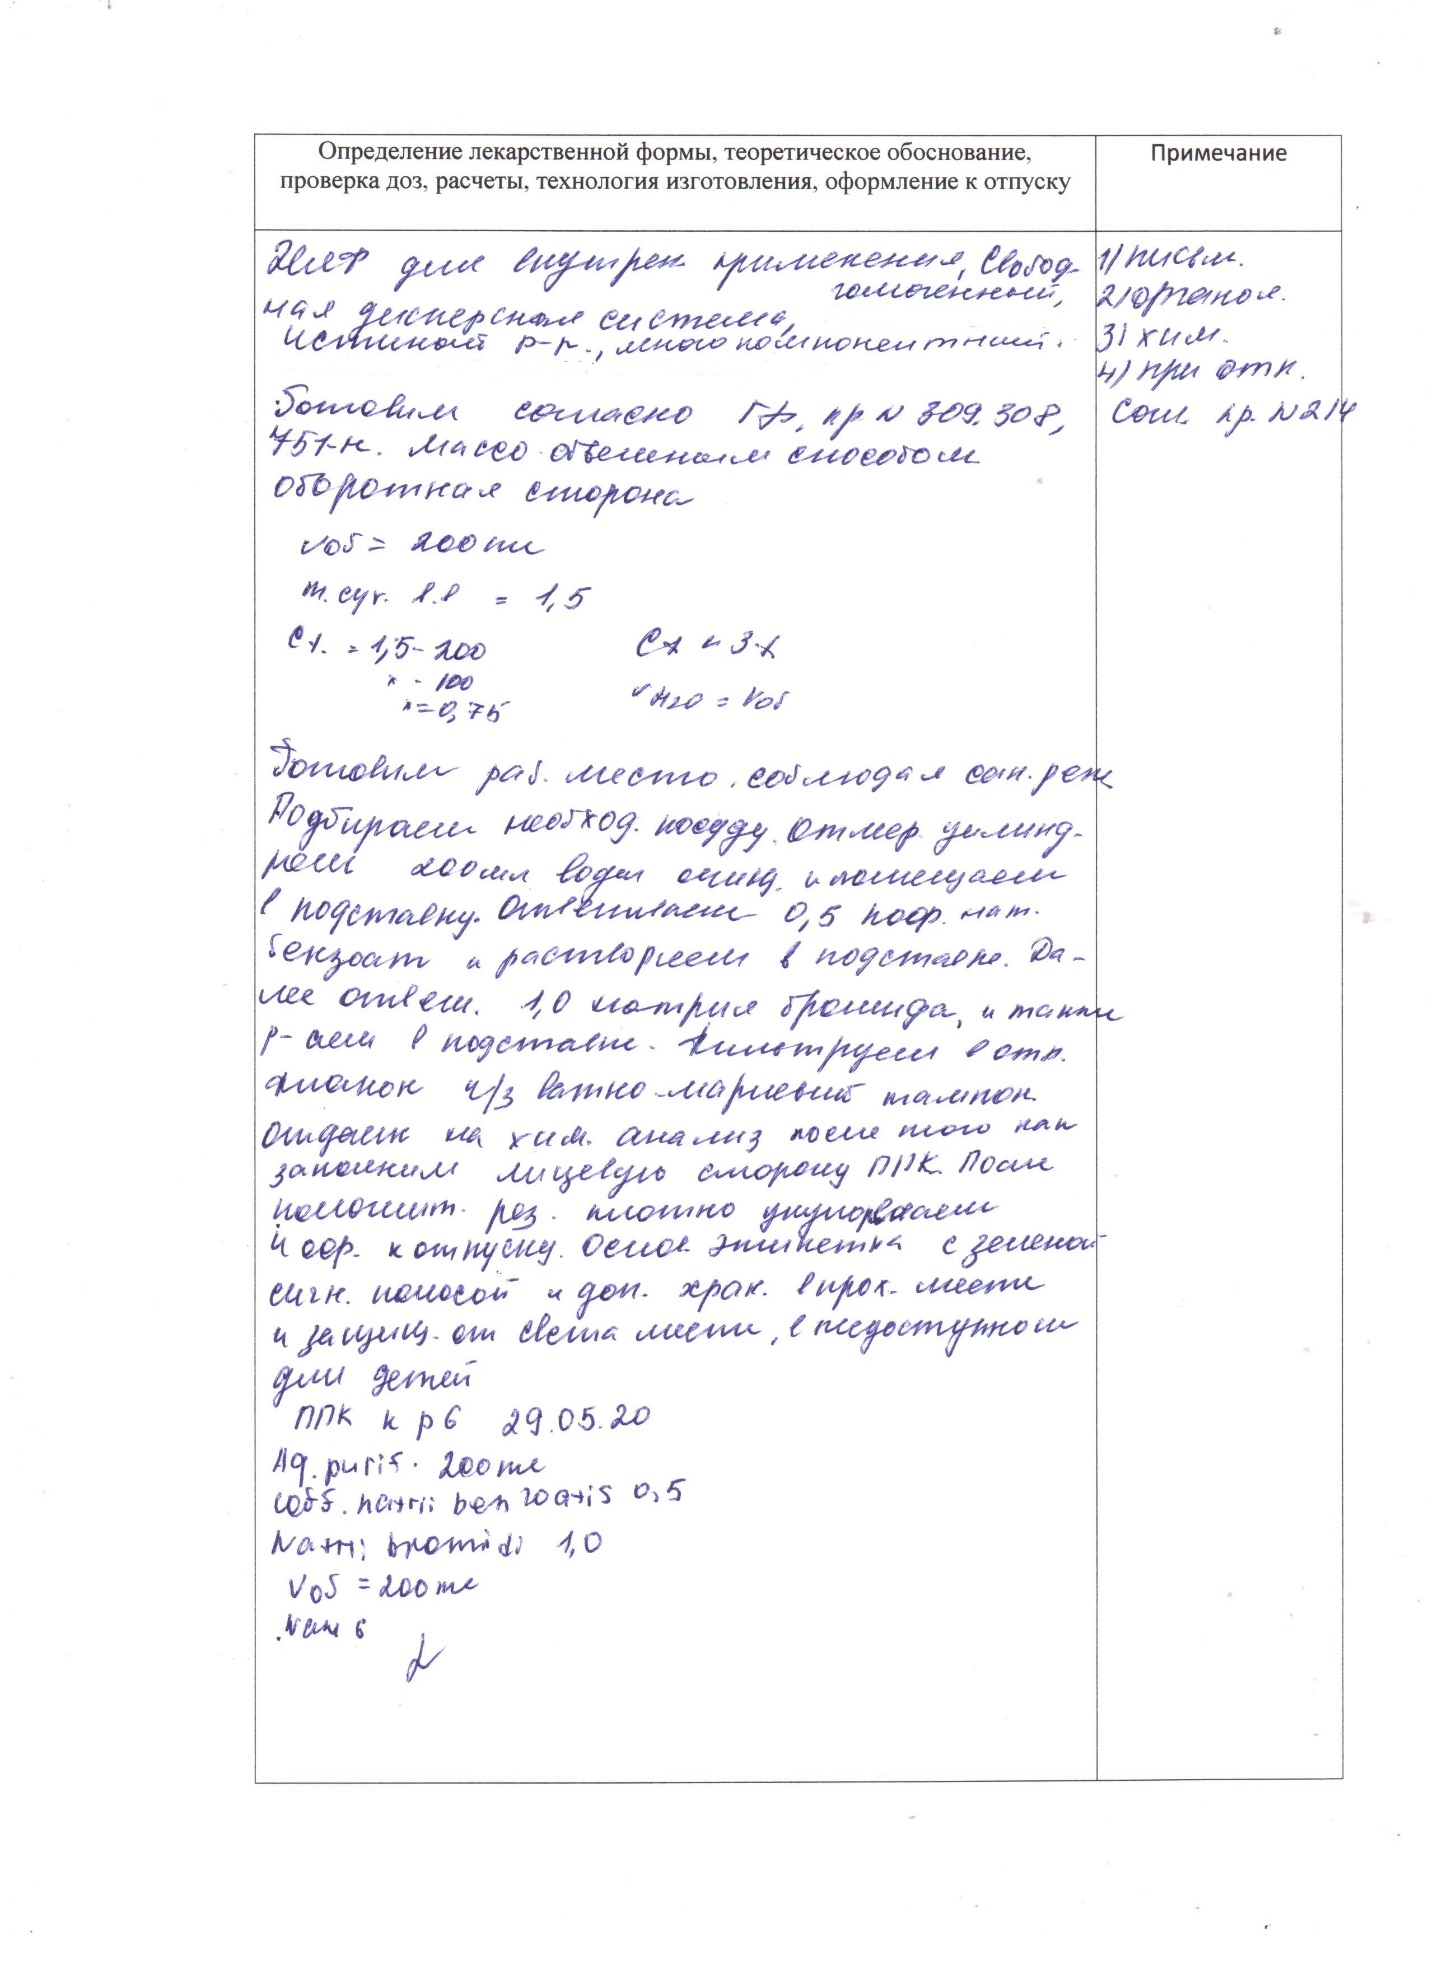 Определение лекарственной формы, теоретическое обоснование,
проверка доз, расчеты, технология изготовления, оформление к отпуску
Примечание
ЖЛФ для внутрен. применения, Свобод-
гомогенный,
ная дисперсная система,
истиной р-р., многокомпонентный.
1) письм.
2) органол.
3) хим.
4) при отп.
Готовим согласно ГФ, пр. N 309. 308,
Сог. пр. N 214
751-н. Массо объемным способом
оборотная сторона
Vоб = 200 ml
m. сух. в.в = 1,5
C%. = 1,5 - 200
C% < 3%
x - 100
V H2O = Vоб
x = 0,75
Готовим раб. место. соблюдая сан. реж
Подбираем необход. посуду. Отмер. цилинд-
ром 200мл воды очищ. и помещаем
в подставку. Отвешиваем 0,5 коф. нат.
бензоат и растворяем в подставке. Да-
лее отвеш. 1,0 натрия бромида, и также
р-яем в подставке. Фильтруем в отп.
флакон ч/з ватно-марлевый тампон
отдаем на хим. анализ после того как
заполним лицевую сторону ППК. После
положит. рез. плотно укупорываем
и оф. к отпуску. Основ. этикетка с зеленой
сигн. полосой и доп. хран. в прох. месте
и защищ. от света месте, в недоступном
для детей
ППК к р 6 29.05.20
Aq. purif. 200 ml
Coff. natrii benzoatis 0,5
Natrii bromidi 1,0
Vоб = 200 ml